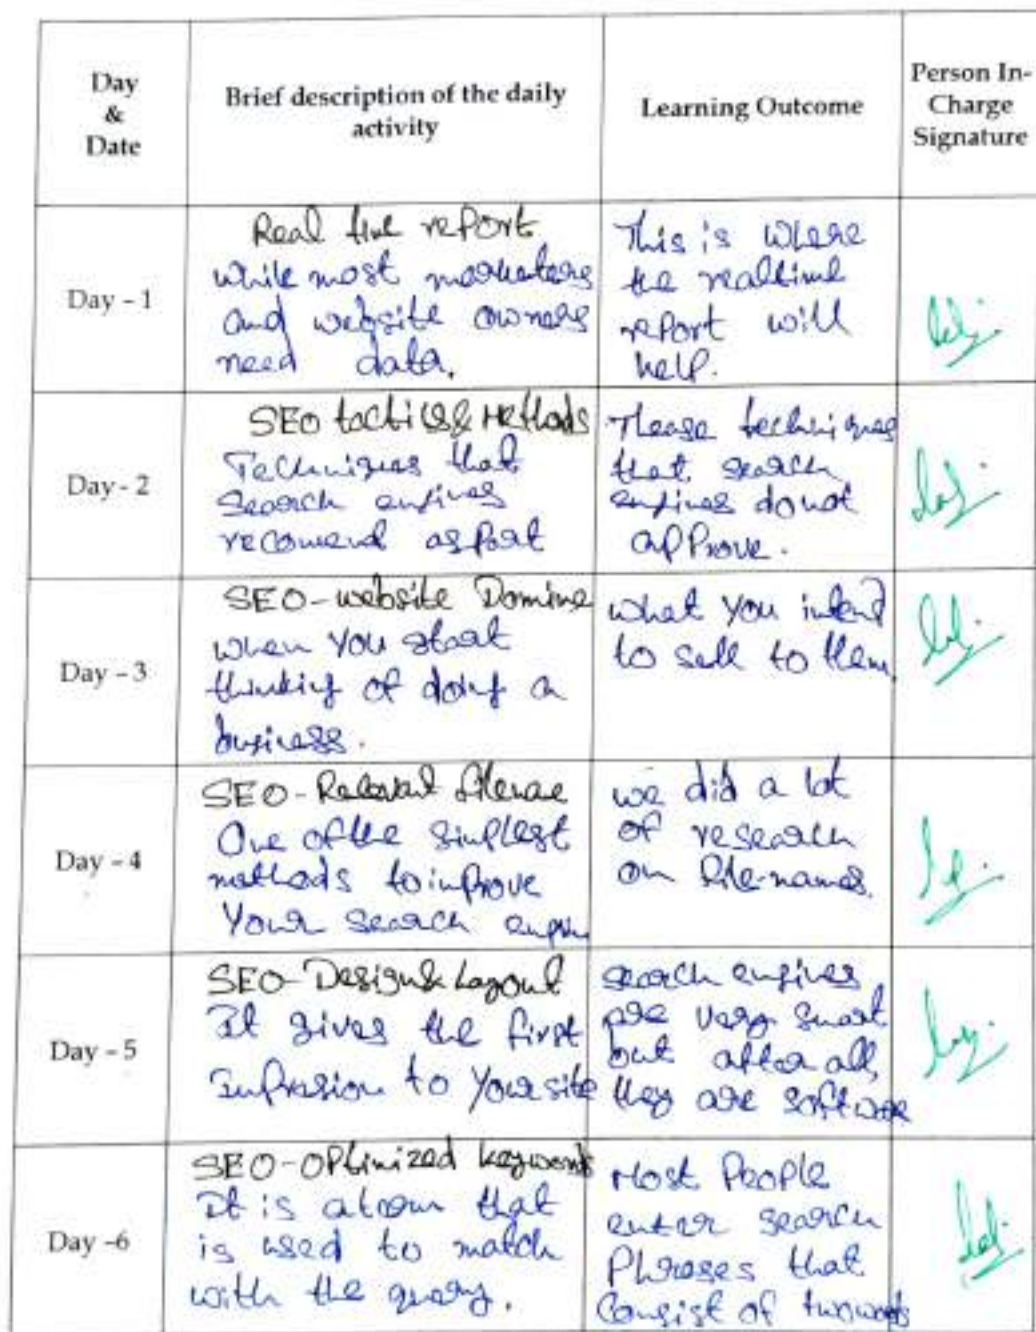 Day
&
Date
Brief description of the daily
activity
Learning Outcome
Person In-
Charge
Signature
Day - 1
Real time report
while most marketers
and website owners
need data.
This is where
the realtime
report will
help.
Day - 2
SEO tactics & Methods
Techniques that
search engines
recomend as part
Thease techniques
that search
engines do not
approve.
Day - 3
SEO-website Domine
when you start
thinking of doing a
business.
what you intend
to sell to them
Day - 4
SEO-Relevant filenae
One of the simplest
methods to improve
Your search engin
we did a lot
of research
on file-names.
Day - 5
SEO-Design & Layout
It gives the first
Impresion to Your site
search engines
are very smart
but after all,
they are software
Day -6
SEO-OPtimized keywords
It is a term that
is used to match
with the query.
Most People
enter search
Phrases that
Consist of two words